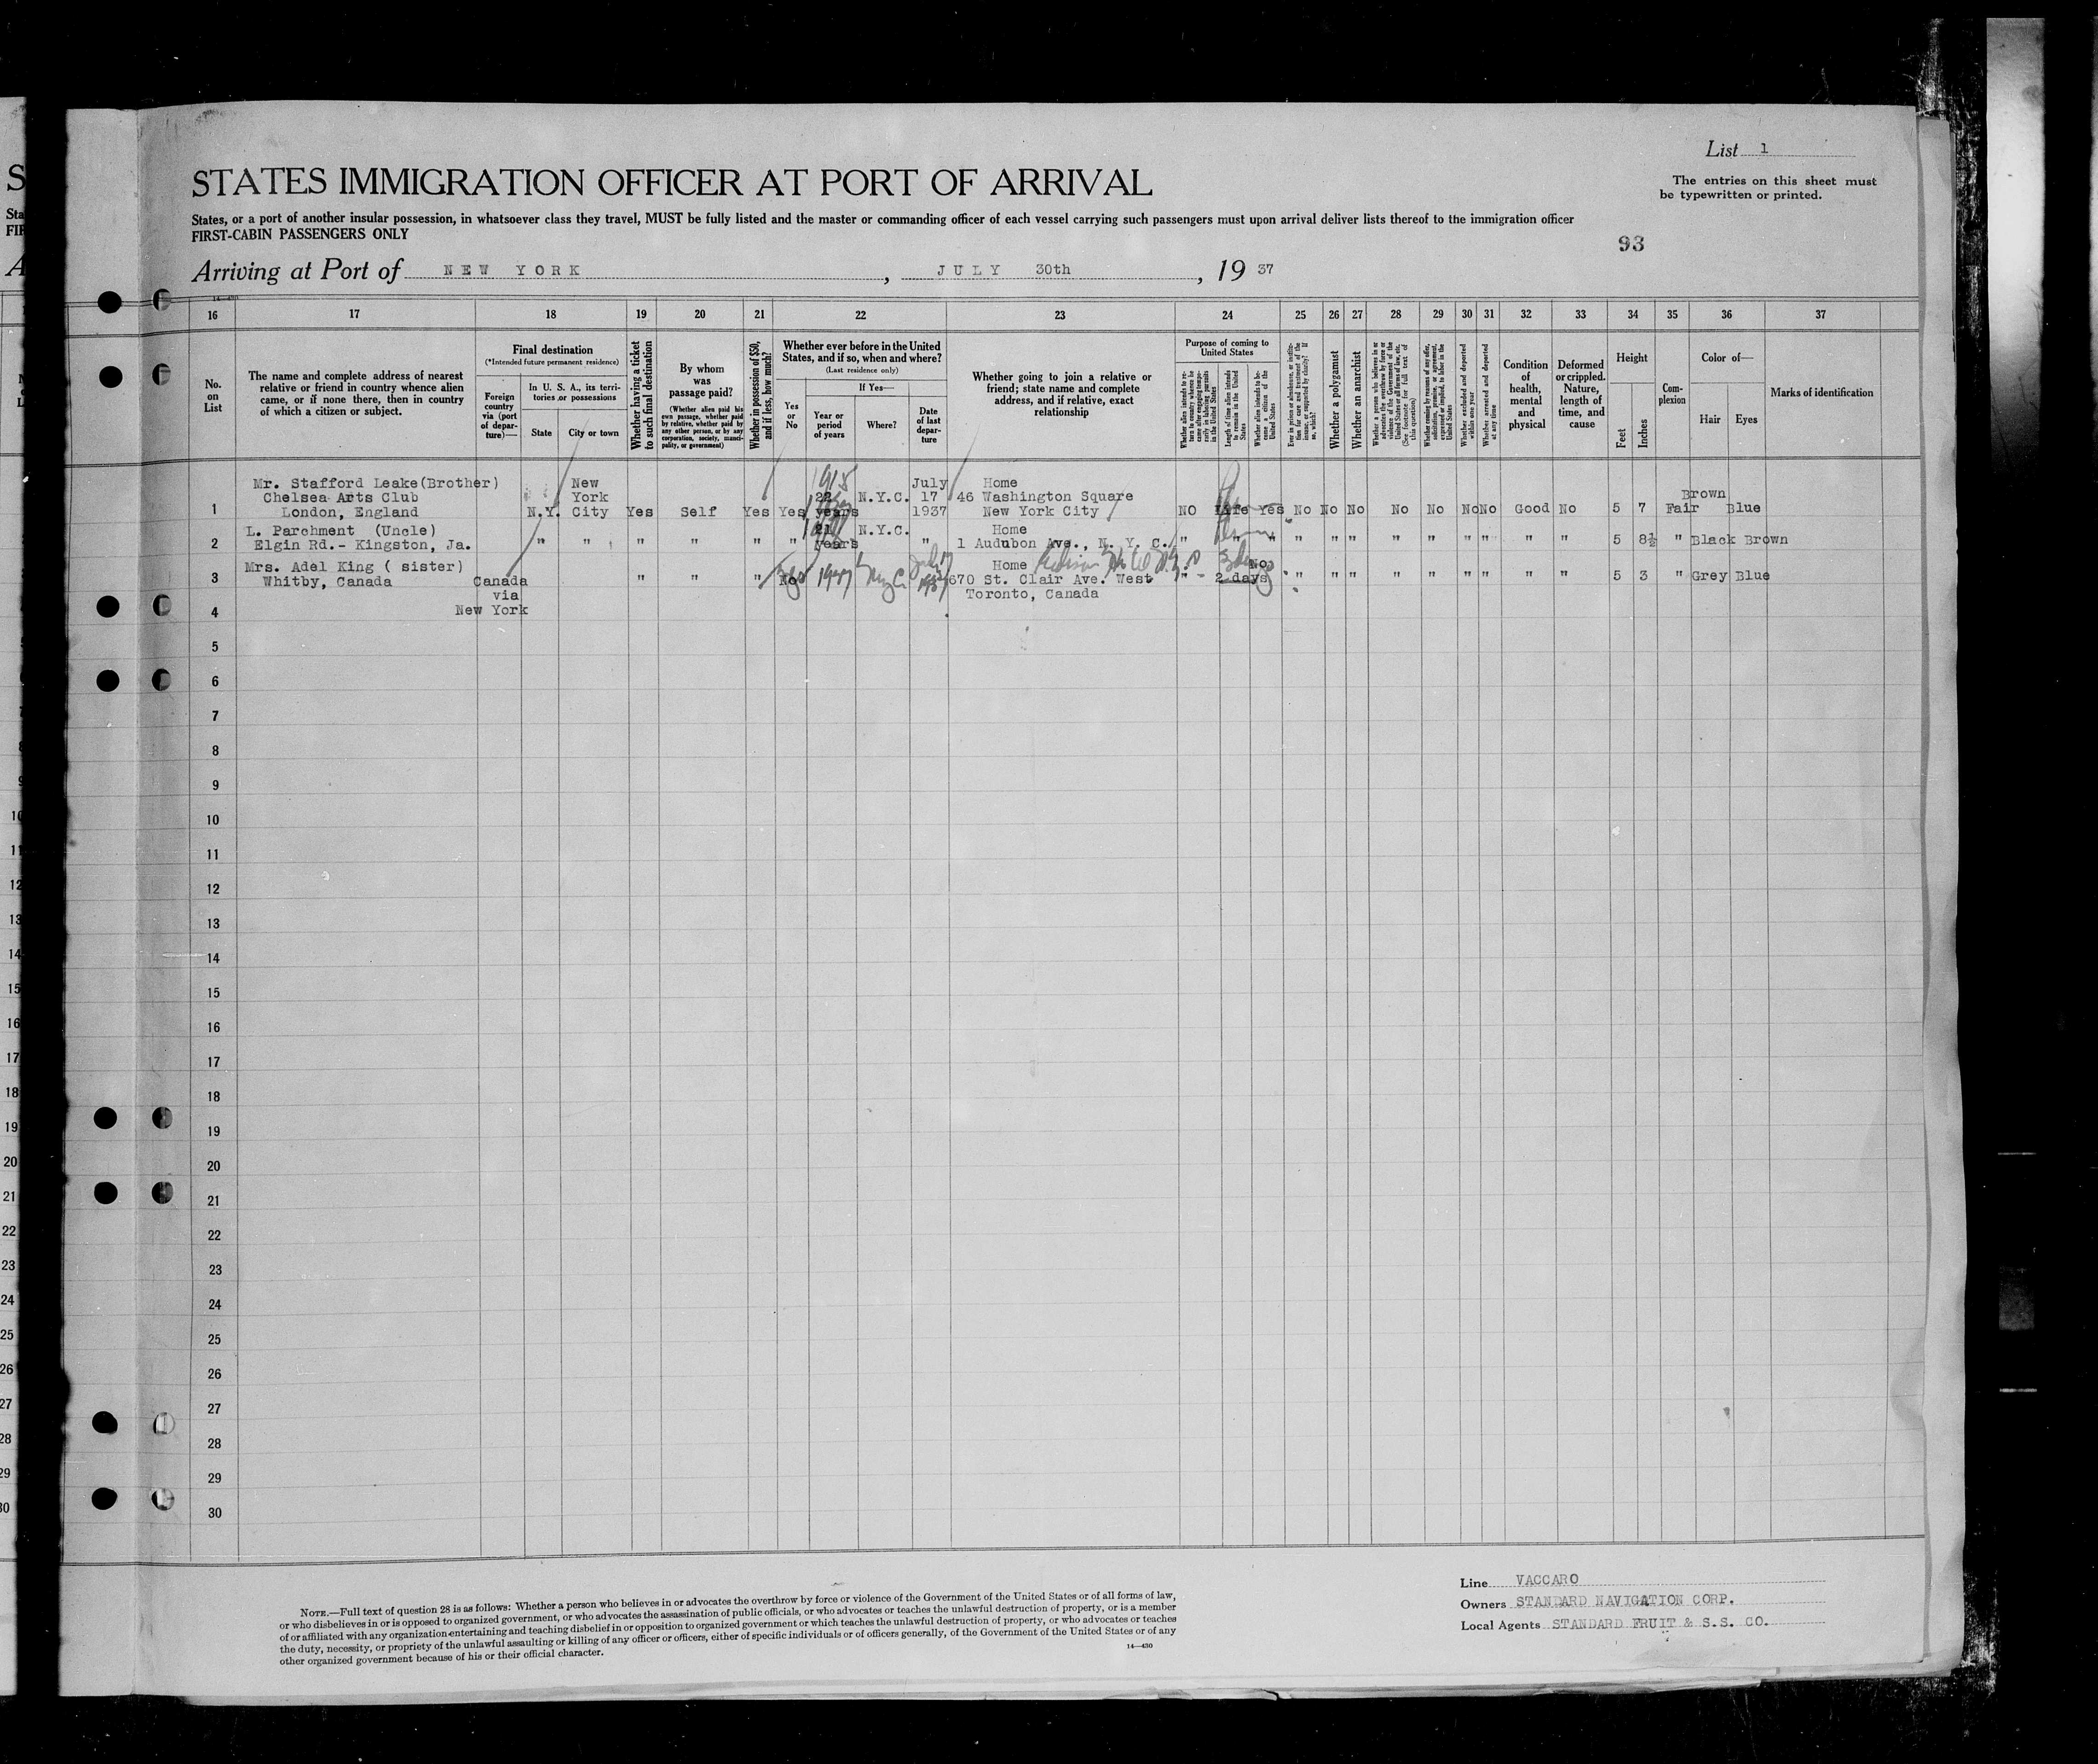 List 1
STATES IMMIGRATION OFFICER AT PORT OF ARRIVAL
The entries on this sheet must
be typewritten or printed.
States, or a port of another insular possession, in whatsoever class they travel, MUST be fully listed and the master or commanding officer of each vessel carrying such passengers must upon arrival deliver lists thereof to the immigration officer
FIRST-CABIN PASSENGERS ONLY
93
Arriving at Port of NEW YORK, JULY 30th, 19 37
14—430
16 17 18 19 20 21 22 23 24 25 26 27 28 29 30 31 32 33 34 35 36 37
No.
on
List
The name and complete address of nearest
relative or friend in country whence alien
came, or if none there, then in country
of which a citizen or subject.
Final destination
(*Intended future permanent residence)
Foreign
country
via (port
of depar-
ture)—
In U. S. A., its terri-
tories or possessions
State
City or town
Whether having a ticket
to such final destination
By whom
was
passage paid?
(Whether alien paid his
own passage, whether paid
by relative, whether paid by
any other person, or by any
corporation, society, munici-
pality, or government)
Whether in possession of $50,
and if less, how much?
Whether ever before in the United
States, and if so, when and where?
(Last residence only)
Yes
or
No
If Yes—
Year or
period
of years
Where?
Date
of last
depar-
ture
Whether going to join a relative or
friend; state name and complete
address, and if relative, exact
relationship
Purpose of coming to
United States
Whether alien intends to re-
turn to country whence he
came after engaging tempo-
rarily in laboring pursuits
in the United States
Length of time alien intends
to remain in the United
States
Whether alien intends to be-
come a citizen of the
United States
Ever in prison or almshouse, or institu-
tion for care and treatment of the
insane, or supported by charity? If
so, which?
Whether a polygamist
Whether an anarchist
Whether a person who believes in or
advocates the overthrow by force or
violence of the Government of the
United States or all forms of law, etc.
(See footnote for full text of
this question)
Whether coming by reasons of any offer,
solicitation, promise, or agreement,
expressed or implied, to labor in the
United States
Whether excluded and deported
within one year
Whether arrested and deported
at any time
Condition
of
health,
mental
and
physical
Deformed
or crippled.
Nature,
length of
time, and
cause
Height
Feet
Inches
Com-
plexion
Color of—
Hair
Eyes
Marks of identification
Mr. Stafford Leake(Brother) New 1915 July Home
Chelsea Arts Club York 22 N.Y.C. 17 46 Washington Square Brown
1 London, England N.Y. City Yes Self Yes Yes years 1937 New York City NO Life Yes No No No No No No No Good No 5 7 Fair Blue
L. Parchment (Uncle) 21 N.Y.C. Home
2 Elgin Rd.- Kingston, Ja. " " " " " " years " 1 Audubon Ave., N. Y. C. " " " " " " " " " " " " 5 8½ " Black Brown
Mrs. Adel King ( sister) July 17 Home No
3 Whitby, Canada Canada " " " No 1937 N.Y.C. 1937 670 St. Clair Ave. West " 2 days " " " " " " " " " 5 3 " Grey Blue
via Toronto, Canada
4 New York
5
6
7
8
9
10
11
12
13
14
15
16
17
18
19
20
21
22
23
24
25
26
27
28
29
30
NOTE.—Full text of question 28 is as follows: Whether a person who believes in or advocates the overthrow by force or violence of the Government of the United States or of all forms of law,
or who disbelieves in or is opposed to organized government, or who advocates the assassination of public officials, or who advocates or teaches the unlawful destruction of property, or is a member
of or affiliated with any organization entertaining and teaching disbelief in or opposition to organized government or which teaches the unlawful destruction of property, or who advocates or teaches
the duty, necessity, or propriety of the unlawful assaulting or killing of any officer or officers, either of specific individuals or of officers generally, of the Government of the United States or of any
other organized government because of his or their official character.
14—430
Line VACCARO
Owners STANDARD NAVIGATION CORP.
Local Agents STANDARD FRUIT & S.S. CO.